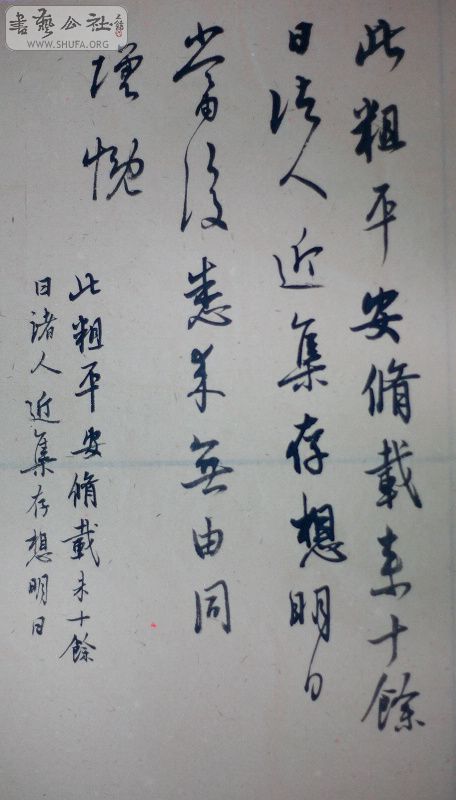 書藝公社
WWW.SHUFA.ORG
此粗平安脩載來十餘
日諸人近集存想明日
當復悉來無由同
增慨
此粗平安脩載來十餘
日諸人近集存想明日